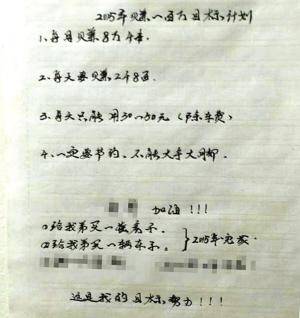 2015年赚一百万目标计划
1、每月赚8万4千.
2、每天要赚248百.
3、每天只能用30～50元（除车费）
4、一定要节约、不能大手大脚.
加油!!!
①给我弟买一栋房子.
②给我弟买一辆车子.
}2015年完成.
这是我的目标努力!!!